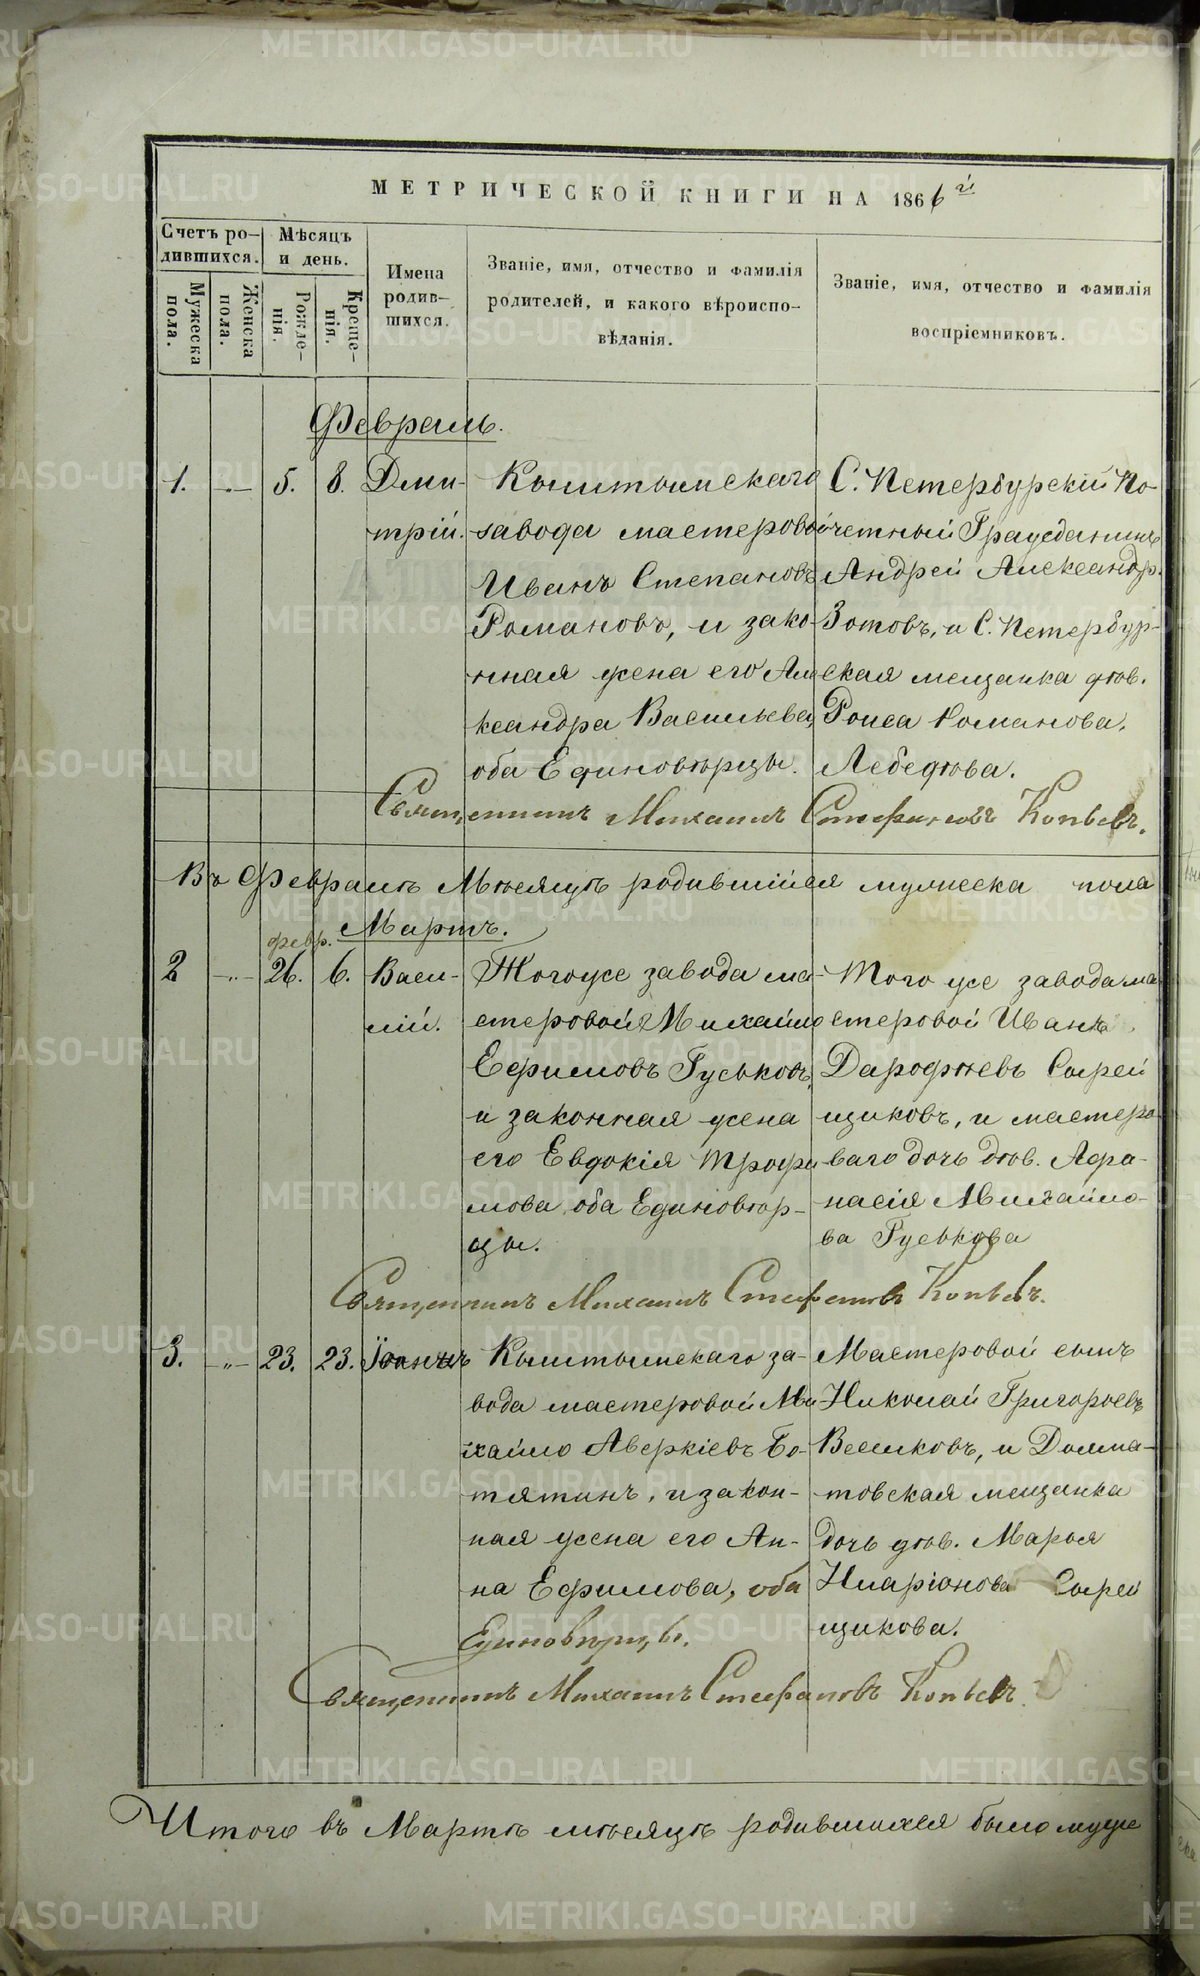 МЕТРИЧЕСКОЙ КНИГИ НА 1866й
Счетъ ро-
дившихся.
Мѣсяцъ
и день.
Мужеска
пола.
Женска
пола.
Рожде-
нія.
Креще-
нія.
Имена
родив-
шихся.
Званіе, имя, отчество и фамилія
родителей, и какого вѣроиспо-
вѣданія.
Званіе, имя, отчество и фамилія
воспріемниковъ.
Февраль.
1. -"- 5. 8. Дми-
трій.
Кыштымскаго
завода мастеровой
Иванъ Степановъ
Романовъ, и зако-
нная жена его Але
ксандра Васильева,
оба Единовѣрцы.
С. Петербурскій По-
четный Гражданинъ
Андрей Александр.
Зотовъ, и С. Петербур-
ская мещанка дѣв.
Роиса Романова.
Лебедѣва.
Священникъ Михаилъ Стефановъ Копьевъ.
Въ Февралѣ Мѣсяцѣ родившійся мужеска пола
Мартъ.
2 -"- февр. 26. 6. Васи-
лій.
Тогоже завода ма-
стеровой Михайло
Ефимовъ Гуськовъ,
и законная жена
его Евдокія Трофи
мова, оба Единовѣр-
цы.
Того же завода ма
стеровой Иванъ
Дарофѣевъ Сырей
щиковъ, и мастеро-
ваго дочь дѣв. Афа-
насія Михайло-
ва Гуськова
Священникъ Михаилъ Стефановъ Копьевъ.
3. -"- 23. 23. Іоаннъ
Кыштымскаго за-
вода мастеровой Ми
хайло Аверкіевъ Бо-
тятинъ, и закон-
ная жена его Ан-
на Ефимова, оба
Единовѣрцы.
Мастеровой сынъ
Николай Григорьевъ
Веселковъ, и Долма-
товская мещанка
дочь дѣв. Марья
Иларіонова Сырей
щикова.
Священникъ Михаилъ Стефановъ Копьевъ.
Итого въ Мартѣ мѣсяцѣ родившихся было муже